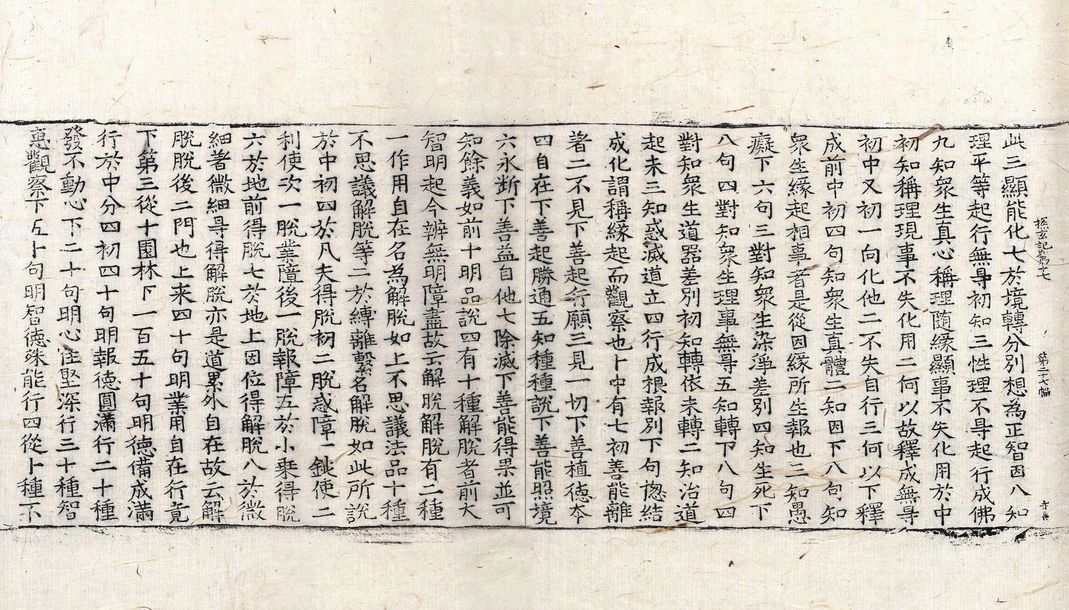 此三顯能化七於境轉分別想為正智因八知
理平等起行無㝵初知三性理不㝵起行成佛
九知衆生真心稱理随緣顯事不失化用於中
初知稱理現事不失化用二何以故釋成無㝵
初中又初一向化他二不失自行三何以下釋
成前中初四句知衆生真體二知因下八句知
衆生緣起相事者是從因緣所生報也二知愚
癡下六句三對知衆生染淨差別四知生死下
八句四對知衆生理事無㝵五知轉下八句四
對知衆生道器差別初知轉依未轉二知治道
起未三知惑滅道立四行成根報別下句惣結
成化謂稱緣起而觀察也卜中有七初善能離
著二不見下善起行願三見一切下善植德本
四自在下善起勝通五知種種說下善能照境
六永斷下善益自他七除滅下善能得果並可
知餘義如前十明品說四有十種解脫者前大
智明起今辨無明障盡故云解脫解脫有二種
一作用自在名為解脫如上不思議法品十種
不思議解脫等二於縛離繫名解脫如此所說
於中初四於凡夫得脫初二脫惑障一鈍使二
利使次一脫業障後一脫報障五於小乘得脫
六於地前得脫七於地上因位得解脫八於微
細著微細㝵得解脫亦是道累外自在故云解
脫脫後二門也上來四十句明業用自在行竟
下第三從十園林下一百五十句明德備成滿
行於中分四初四十句明報德圓滿行二十種
發不動心下二十句明心住堅深行三十種智
惠觀察下五十句明智德殊能行四從卜種不
探玄記第十七
第二十七幅